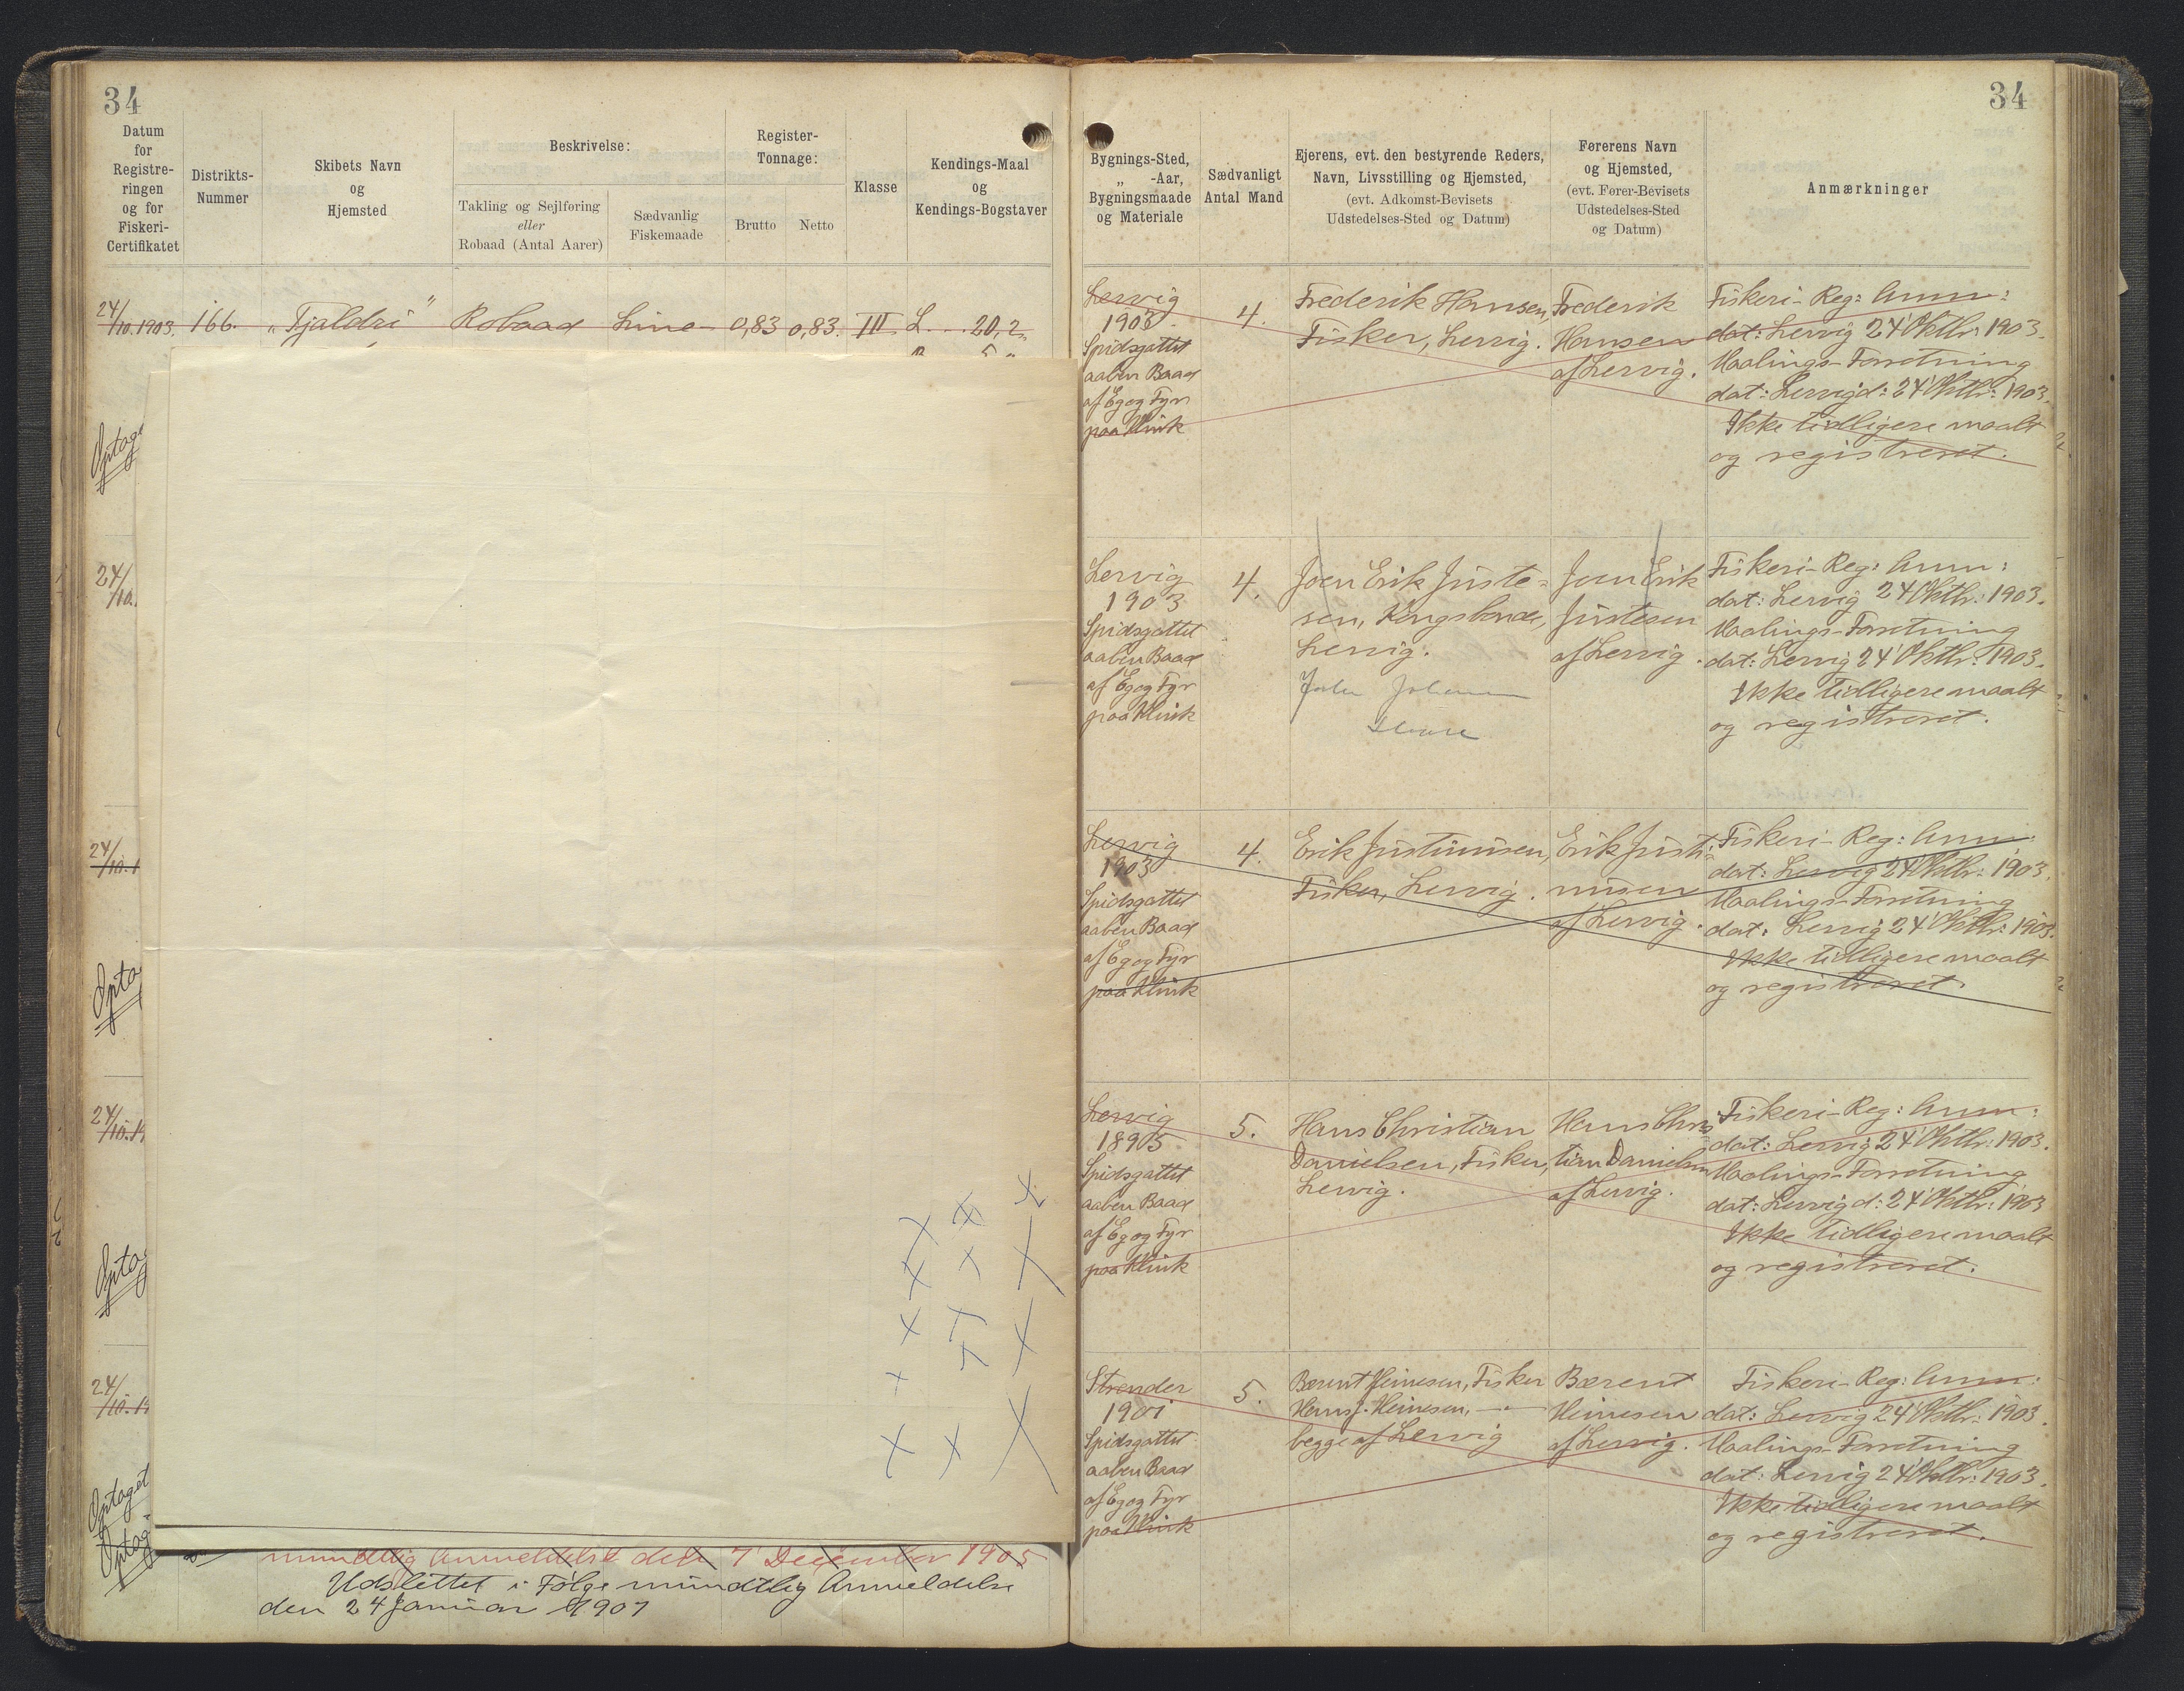 34
Datum
for
Registre-
ringen
og for
Fiskeri-
Certifikatet
Distrikts-
Nummer
Skibets Navn
og
Hjemsted
Beskrivelse:
Takling og Sejlføring
eller
Robaad (Antal Aarer)
Sædvanlig
Fiskemaade
Register-
Tonnage:
Brutto
Netto
Klasse
Kendings-Maal
og
Kendings-Bogstaver
24/10.1903. 166. "Tjaldri" Robaad Line 0,83 0,83. III L. 20,2
Optag
24/10.
24/10.1
Opta
24/10.19
Optag
24/10.19
Optaget
Optag
mundtlig Anmeldelse den 7' December 1905
Udslettet i Følge mundtlig Anmeldelse
den 24 Januar 1907
34
Bygnings-Sted,
„ -Aar,
Bygningsmaade
og Materiale
Sædvanligt
Antal Mand
Ejerens, evt. den bestyrende Reders,
Navn, Livsstilling og Hjemsted,
(evt. Adkomst-Bevisets
Udstedelses-Sted og Datum)
Førerens Navn
og Hjemsted,
(evt. Fører-Bevisets
Udstedelses-Sted
og Datum)
Anmærkninger
Lervig
1903
Spidsgattet
aaben Baad
af Eg og Fyr
paa Klink
4.
Frederik Hansen,
Fisker, Lervig.
Frederik
Hansen
af Lervig.
Fiskeri-Reg: Anm:
dat: Lervig 24' Oktbr: 1903.
Maalings-Forretning
dat: Lervig d: 24' Oktbr: 1903.
Ikke tidligere maalt
og registreret.
Lervig
1903
Spidsgattet
aaben Baad
af Eg og Fyr
paa Klink
4.
Joen Erik Juste-
sen, Kongsbonde,
Lervig.
Joen Erik
Justesen
af Lervig.
Fiskeri-Reg: Anm:
dat: Lervig 24' Oktbr: 1903.
Maalings-Forretning
dat: Lervig 24' Oktbr: 1903.
Ikke tidligere maalt
og registreret.
Lervig
1903
Spidsgattet
aaben Baad
af Eg og Fyr
paa Klink
4.
Erik Justinusen,
Fisker, Lervig.
Erik Justi-
nusen
af Lervig.
Fiskeri-Reg: Anm:
dat: Lervig 24' Oktbr: 1903.
Maalings-Forretning
dat: Lervig 24' Oktbr: 1903.
Ikke tidligere maalt
og registreret.
Lervig
1895
Spidsgattet
aaben Baad
af Eg og Fyr
paa Klink
5.
Hans Christian
Danielsen, Fisker,
Lervig.
Hans Chris
tian Danielsen
af Lervig.
Fiskeri-Reg: Anm:
dat: Lervig 24' Oktbr: 1903.
Maalings-Forretning
dat: Lervig d: 24' Oktbr: 1903
Ikke tidligere maalt
og registreret.
Strender
1901
Spidsgattet
aaben Baad
af Eg og Fyr
paa Klink
5.
Bærent Heinesen, Fisker
Hans J. Heinesen, —"—
begge af Lervig
Bærent
Heinesen
af Lervig.
Fiskeri-Reg: Anm:
dat: Lervig 24' Oktbr: 1903.
Maalings-Forretning
dat: Lervig 24' Oktbr: 1903.
Ikke tidligere maalt
og registreret.